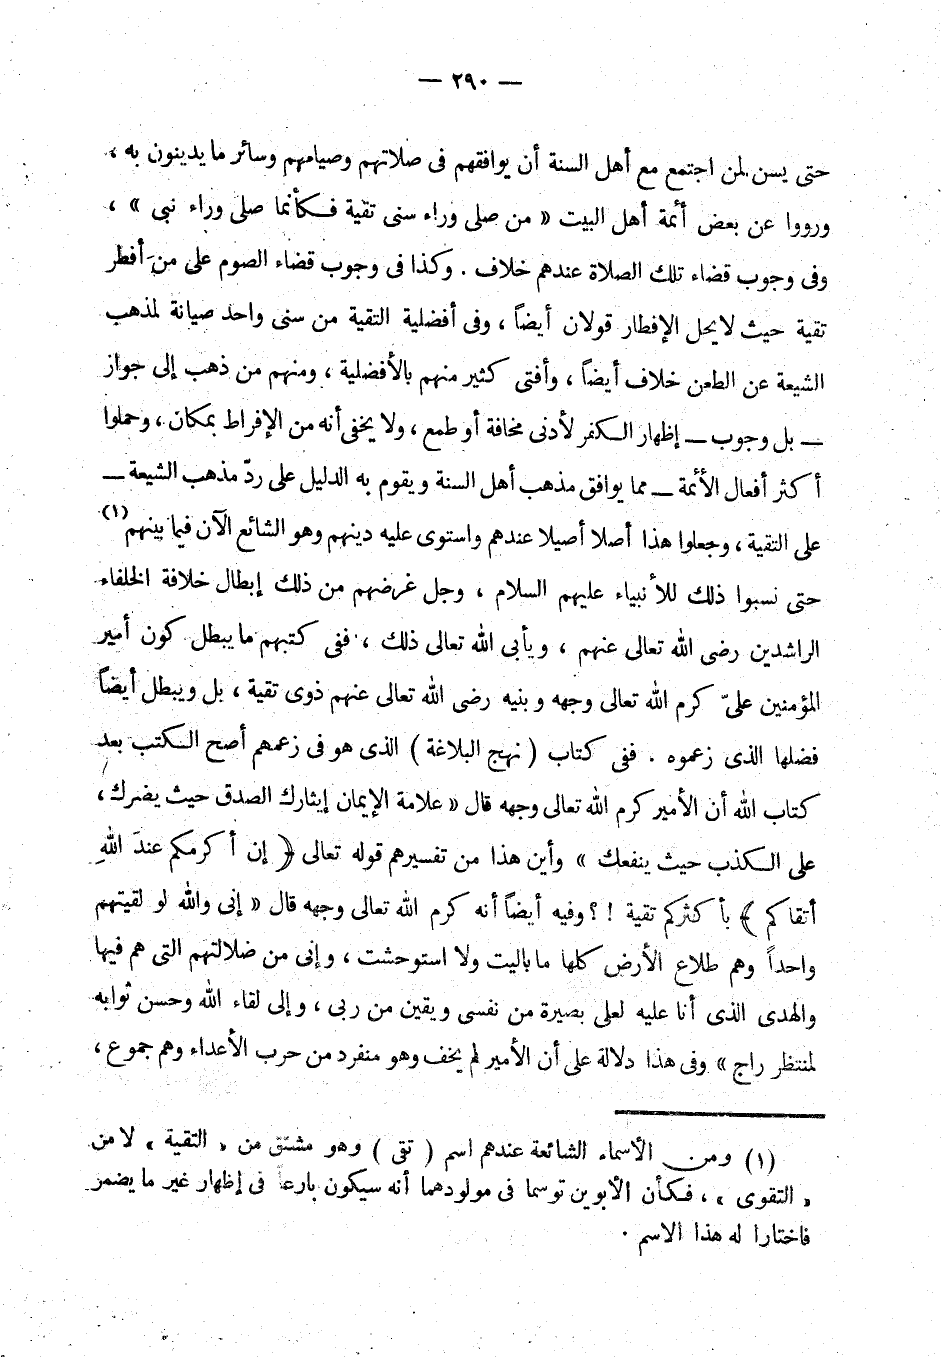 — ٢٩٠ —
حتى يسن لمن اجتمع مع أهل السنة أن يوافقهم فى صلاتهم وصيامهم وسائر ما يدينون به ،
ورووا عن بعض أئمة أهل البيت « من صلى وراء سنى تقية فكأنما صلى وراء نبى » ،
وفى وجوب قضاء تلك الصلاة عندهم خلاف . وكذا فى وجوب قضاء الصوم على من أفطر
تقية حيث لا يحل الإفطار قولان أيضاً ، وفى أفضلية التقية من سنى واحد صيانة لمذهب
الشيعة عن الطعن خلاف أيضاً ، وأفتى كثير منهم بالأفضلية ، ومنهم من ذهب إلى جواز
— بل وجوب — إظهار الكفر لأدنى مخافة أو طمع ، ولا يخفى أنه من الإفراط بمكان ، وحملوا
أكثر أفعال الأئمة — مما يوافق مذهب أهل السنة ويقوم به الدليل على ردّ مذهب الشيعة —
على التقية ، وجعلوا هذا أصلا أصيلا عندهم واستوى عليه دينهم وهو الشائع الآن فيما بينهم (١)
حتى نسبوا ذلك للأنبياء عليهم السلام ، وجل غرضهم من ذلك إبطال خلافة الخلفاء
الراشدين رضى الله تعالى عنهم ، ويأبى الله تعالى ذلك ، ففى كتبهم ما يبطل كون أمير
المؤمنين علىّ كرم الله تعالى وجهه وبنيه رضى الله تعالى عنهم ذوى تقية ، بل ويبطل أيضاً
فضلها الذى زعموه . ففى كتاب ( نهج البلاغة ) الذى هو فى زعمهم أصح الكتب بعد
كتاب الله أن الأمير كرم الله تعالى وجهه قال « علامة الإيمان إيثارك الصدق حيث يضرك ،
على الكذب حيث ينفعك » وأين هذا من تفسيرهم قوله تعالى ﴿ إن أكرمكم عندَ اللهِ
أتقاكم ﴾ بأكثركم تقية ! ؟ وفيه أيضاً أنه كرم الله تعالى وجهه قال « إنى والله لو لقيتهم
واحداً وهم طلاع الأرض كلها ما باليت ولا استوحشت ، وإنى من ضلالتهم التى هم فيها
والهدى الذى أنا عليه لعلى بصيرة من نفسى ويقين من ربى ، وإلى لقاء الله وحسن ثوابه
لمنتظر راج » وفى هذا دلالة على أن الأمير لم يخف وهو منفرد من حرب الأعداء وهم جموع ،
(١) ومن الأسماء الشائعة عندهم اسم ( تقى ) وهو مشتق من « التقية » لا من
« التقوى » ، فكأن الأبوين توسما فى مولودهما أنه سيكون بارعاً فى إظهار غير ما يضمر
فاختارا له هذا الاسم .